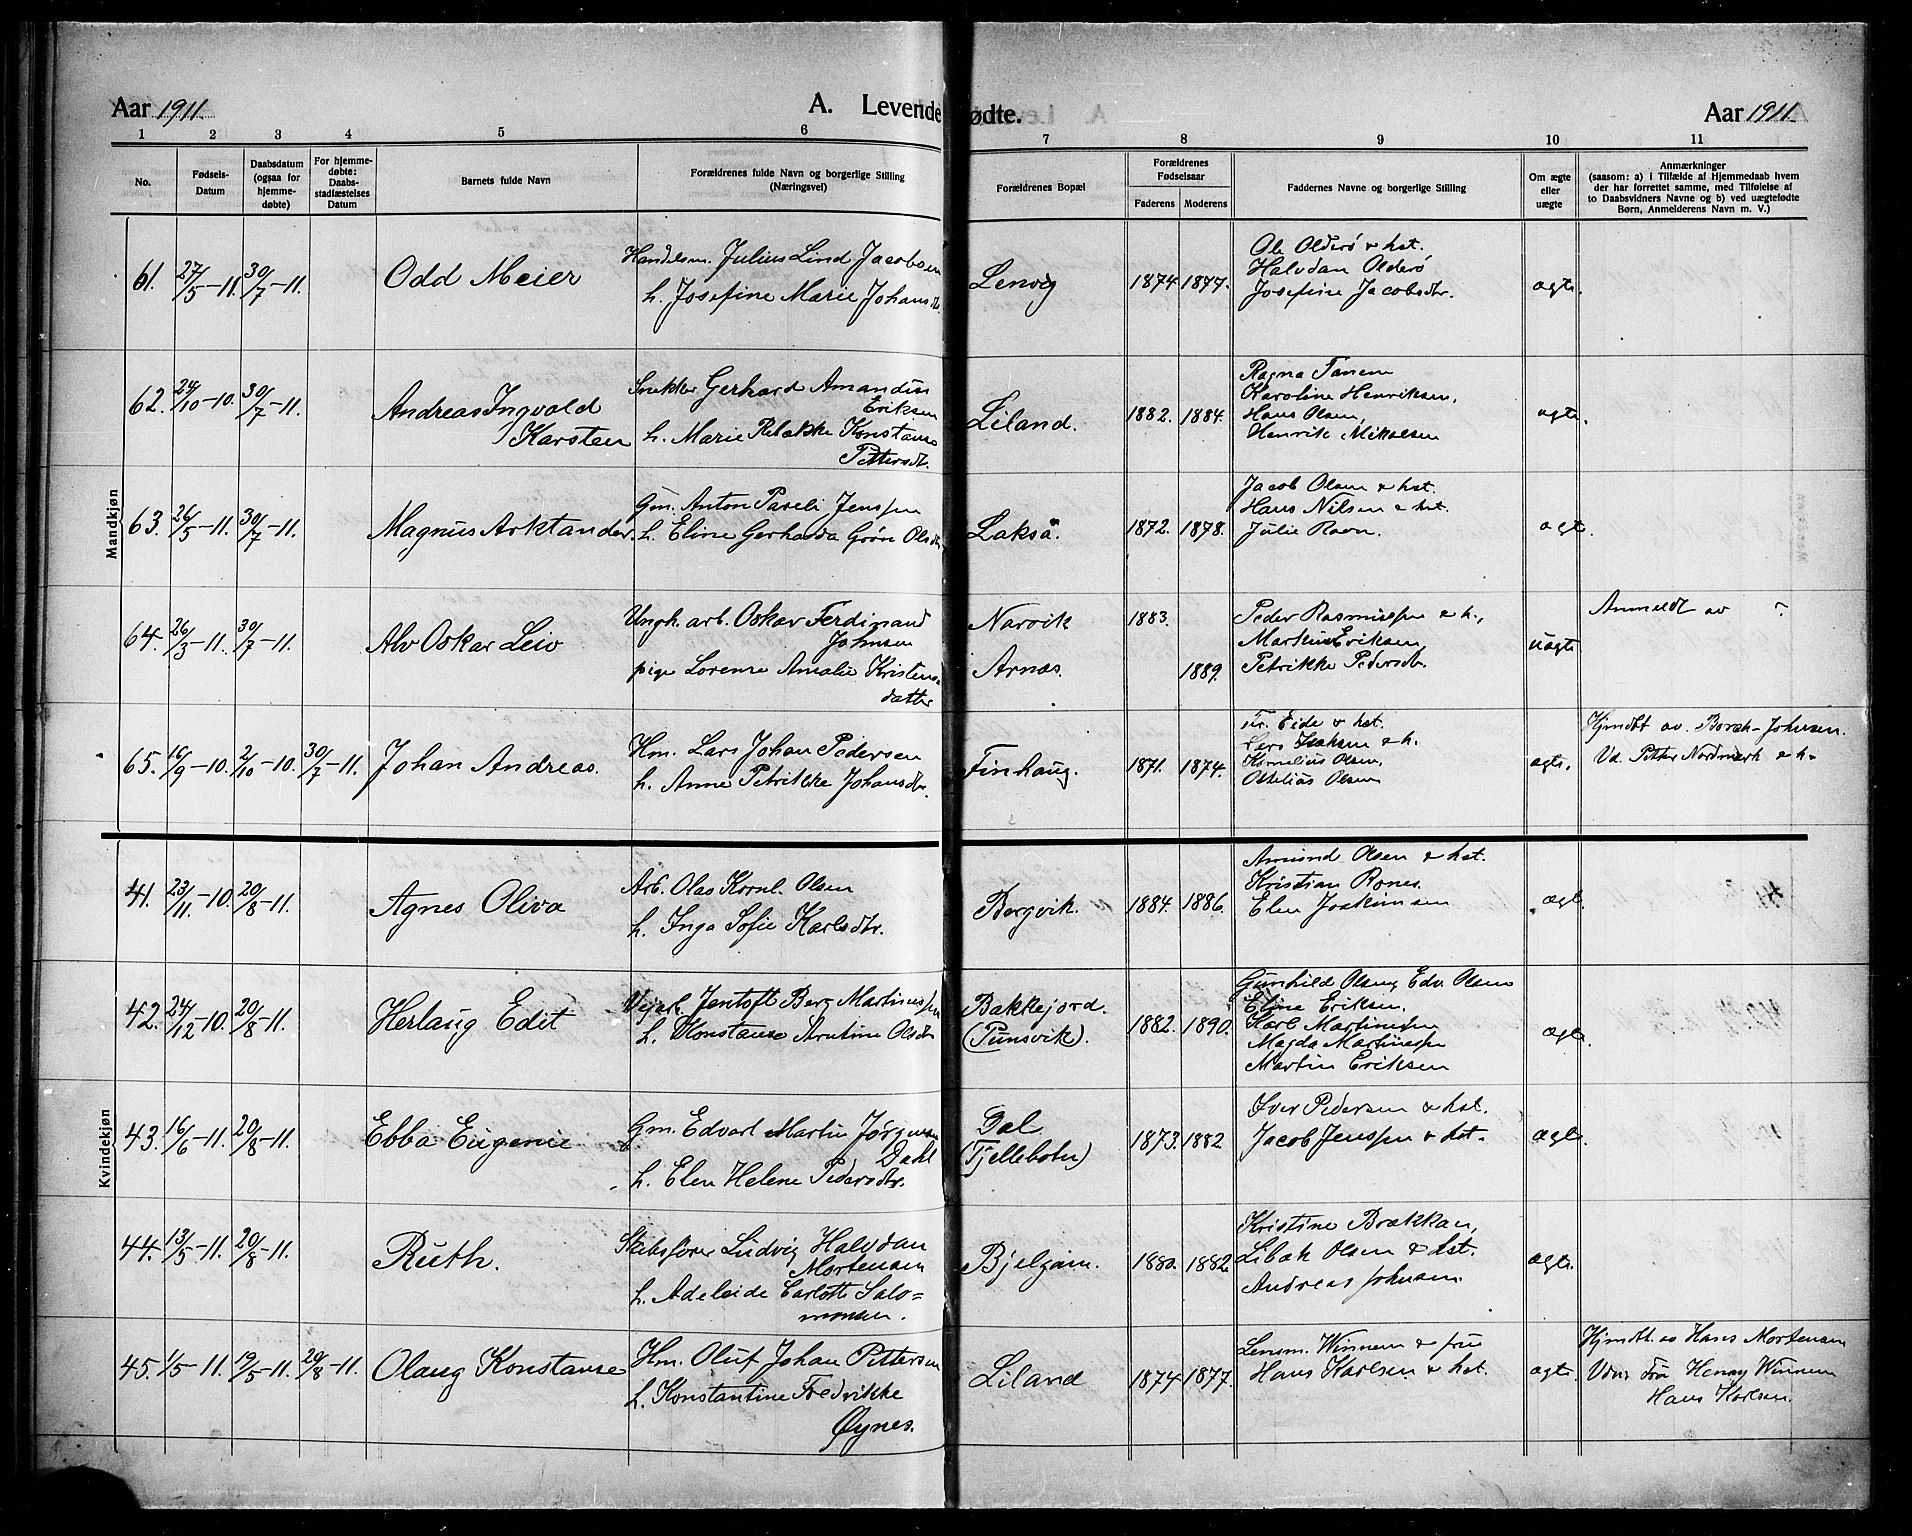 Aar 1911. A. Levendefødte. Aar 1911.
1 2 3 4 5 6 7 8 9 10 11
No. Fødsels-Datum Daabsdatum (ogsaa for hjemmedøbte) For hjemmedøbte: Daabsstadfæstelses Datum Barnets fulde Navn Forældrenes fulde Navn og borgerlige Stilling (Næringsvei) Forældrenes Bopæl Forældrenes Fødselsaar Faderens Moderens Faddernes Navne og borgerlige Stilling Om ægte eller uægte Anmærkninger
(saasom: a) i Tilfælde af Hjemmedaab hvem der har forrettet samme, med Tilføielse af to Daabsvidners Navne og b) ved uægtefødte Børn, Anmelderens Navn m. V.)
Mandkjøn
61. 27/5-11. 30/7-11. Odd Meier Handelsm. Julius Lind Jacobsen Lenvig 1874 1877. Ole Olderø & hst. ægte.
h. Josefine Marie Johansdtr. Halvdan Olderø
Josefine Jacobsdtr.
62. 24/10-10. 30/7-11. Andreas Ingvald Snekker Gerhard Amandus Liland. 1882. 1884. Ragna Tanem ægte.
Karsten Eriksen Karoline Henriksen,
h. Marie Rebekke Konstanse Hans Olsen,
Pettersdtr. Henrik Mikalsen
63. 26/5-11. 30/7-11. Magnus Arktander. Gm. Anton Pareli Jenssen Lakså. 1872. 1878. Jacob Olsen & hst. ægte.
h. Eline Gerharda Grøn Olsdtr. Hans Nilsen & hst.
Julie Ravn.
64. 26/3-11. 30/7-11. Alv Oskar Leiv Ungk. arb. Oskar Ferdinand Narvik 1883. Peder Rasmussen & h., uægte Anmeldt av ?
Johnsen Markus Eriksen,
pige Lorense Amalie Kristens- Arnæs. 1889. Petrikke Pedersdtr.
datter
65. 16/9-10. 2/10-10. 30/7-11. Johan Andreas. Hm. Lars Johan Pedersen Finhaug. 1871. 1874. Fr. Eide & hst. ægte. Hjmdbt av. Johnsen.
h. Anne Petrikke Johansdtr. Lars Isaksen & h. Vd. Petter Nordmark & h.
Kornelius Olsen,
Othelias Olsen
Kvindekjøn
41. 23/11-10. 20/8-11. Agnes Oliva Arb. Olas Kornl. Olsen Bergvik. 1884. 1886. Amund Olsen & hst. ægt.
h. Inga Sofie Karlsdtr. Kristian Rones.
Elen Joakimsen
42. 24/12-10. 20/8-11. Herlaug Edit Jentoft Berg Martinussen Bakkejord. 1882. 1890. Gunhild Olsen, Edv. Olsen ægte.
h. Konstanse Arntine Olsdtr. (Punsvik). Eline Eriksen,
Karl Martinussen
Magda Martinussen
Martin Eriksen
43. 16/6-11. 20/8-11. Ebba Eugenie Gm. Edvart Martin Jørgensen Dal 1873. 1882 Iver Pedersen & hst. ægte.
Dahl (Tjellebotn) Jacob Jenssen & hst.
h. Elen Helene Pedersdtr.
44. 13/5-11. 20/8-11. Ruth. Skibsfører Ludvig Halvdan Bjelgam. 1880. 1882 Kristine Brækkan, ægte.
Mortensen Libæk Olsen & hst.
h. Adeleide Carlotte Salo= Andreas Johnsen.
monsen.
45. 1/5-11. 19/5-11. 20/8-11. Olaug Konstanse Hm. Oluf Johan Pettersen Liland 1874 1877. Lensm. Winnem & frue ægte. Hjmdbt. av Hans Mortensen
h. Konstantine Fredrikke Hans Karlsen & hst. Vidner Fru Henny Winnem
Øynes. Hans Karlsen.